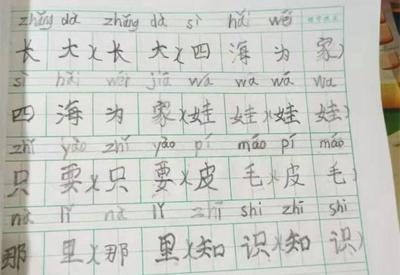 zhǎng dà zhǎng dà sì hǎi wéi
长大(长大(四海为家)
sì hǎi wéi jiā wá wá wá wa
四海为家(娃娃)(娃娃)
zhǐ yào zhǐ yào pí máo pí máo
只要(只要(皮毛)(皮毛)
nà lǐ nà lǐ zhī shi zhī shi
那里(那里(知识)(知识)